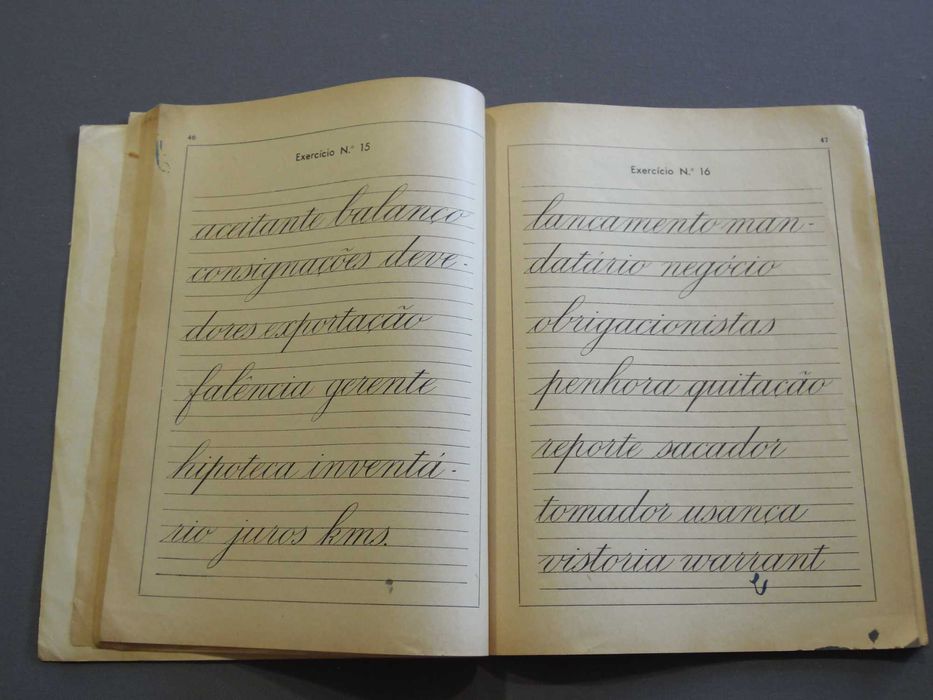 46
Exercício N.º 15
aceitante balanço
consignações deve-
dores exportação
falência gerente
hipoteca inventá-
rio juros kms.
47
Exercício N.º 16
lançamento man-
datário negócio
obrigacionistas
penhora quitação
reporte sacador
tomador usança
vistoria warrant